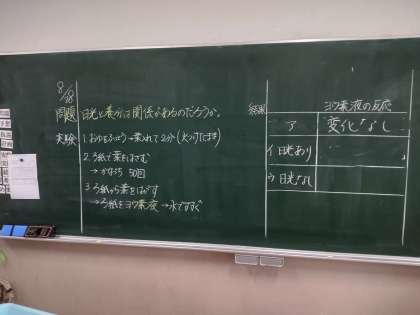 8/28
問題 日光と養分は関係があるのだろうか。
実験 1.おゆをふっとう→葉入れて2分(火つけたまま)
2.ろ紙で葉をはさむ
→かなづち 50回
3.ろ紙から葉をはがす
→ろ紙をヨウ素液→水ですすぐ
結果
ヨウ素液の反応
ア 変化なし
イ 日光あり
ウ 日光なし